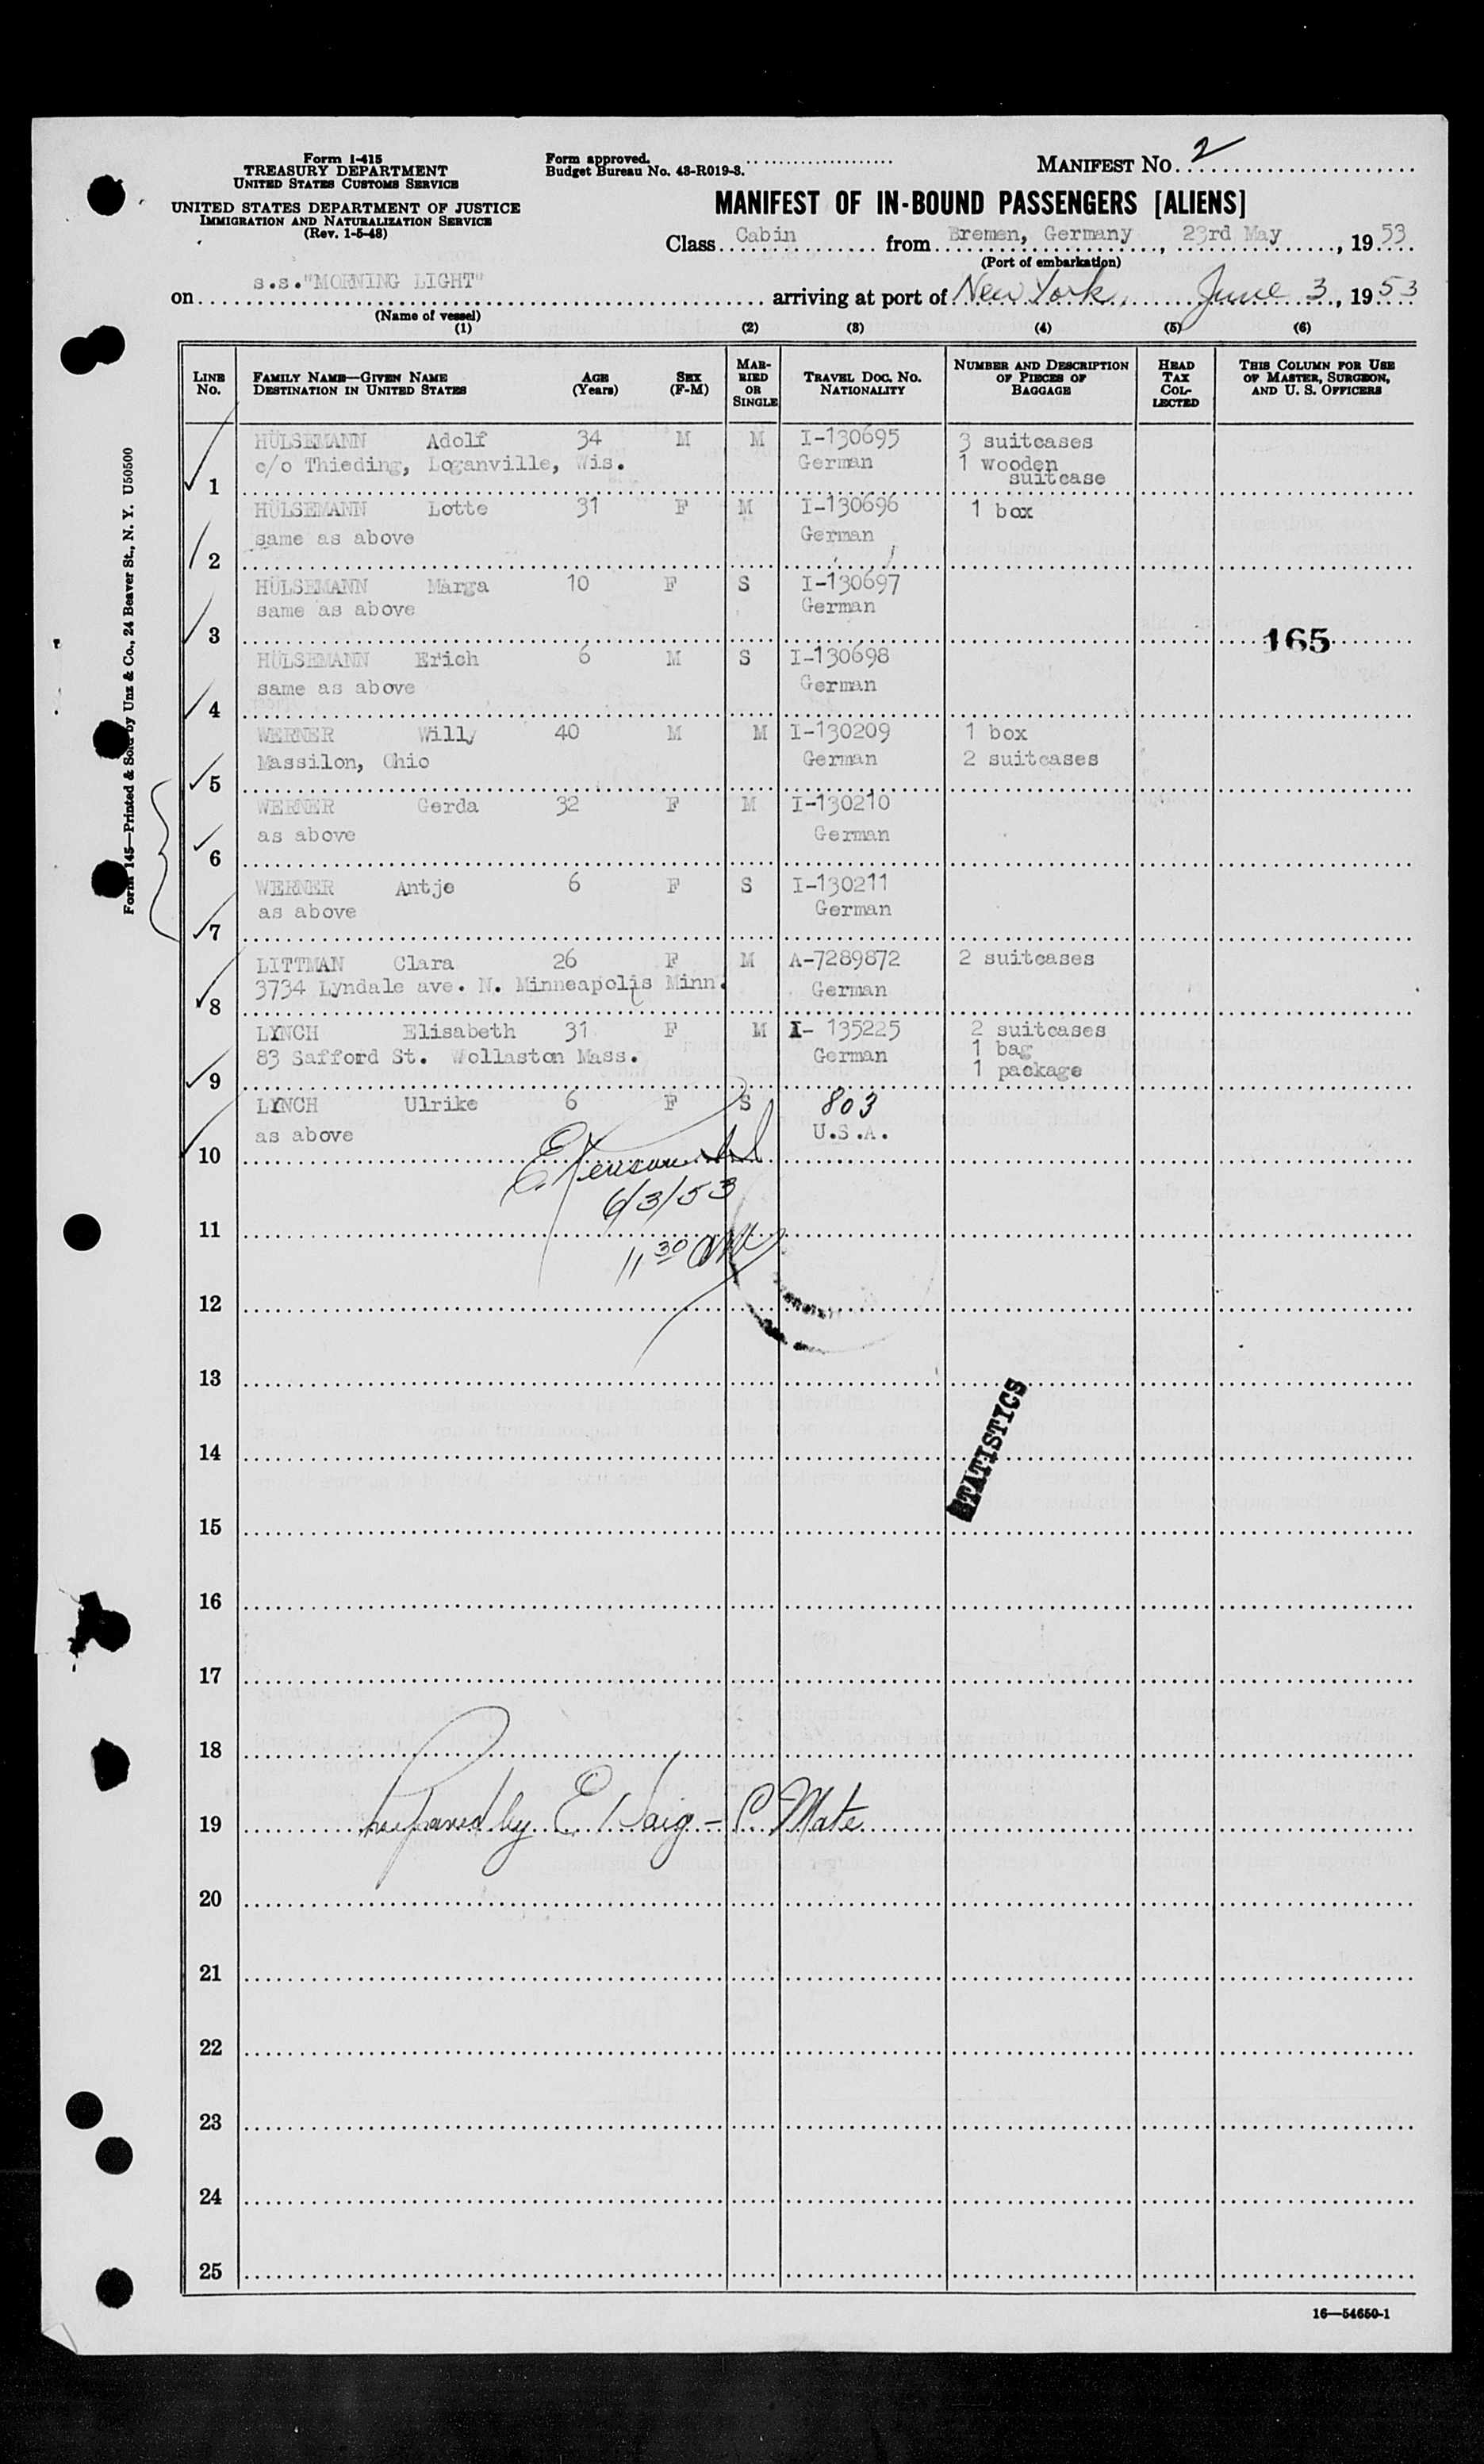 Form I-415
TREASURY DEPARTMENT
UNITED STATES CUSTOMS SERVICE
UNITED STATES DEPARTMENT OF JUSTICE
IMMIGRATION AND NATURALIZATION SERVICE
(Rev. 1-5-48)
Form approved.
Budget Bureau No. 43-R019-3.
MANIFEST NO. 2
MANIFEST OF IN-BOUND PASSENGERS [ALIENS]
Class Cabin from Bremen, Germany, 23rd May, 1953
(Port of embarkation)
on s.s."MORNING LIGHT" arriving at port of New York, June 3, 1953
(Name of vessel)
(1) (2) (3) (4) (5) (6)
LINE NO.
FAMILY NAME—GIVEN NAME
DESTINATION IN UNITED STATES
AGE (Years)
SEX (F-M)
MARRIED OR SINGLE
TRAVEL DOC. NO.
NATIONALITY
NUMBER AND DESCRIPTION OF PIECES OF BAGGAGE
HEAD TAX COLLECTED
THIS COLUMN FOR USE OF MASTER, SURGEON, AND U. S. OFFICERS
HÜLSEMANN Adolf 34 M M I-130695 3 suitcases
c/o Thieding, Loganville, Wis. German 1 wooden
suitcase
1
HÜLSEMANN Lotte 31 F M I-130696 1 box
same as above German
2
HÜLSEMANN Marga 10 F S I-130697
same as above German
3 165
HÜLSEMANN Erich 6 M S I-130698
same as above German
4
WERNER Willy 40 M M I-130209 1 box
Massilon, Ohio German 2 suitcases
5
WERNER Gerda 32 F M I-130210
as above German
6
WERNER Antje 6 F S I-130211
as above German
7
LITTMAN Clara 26 F M A-7289872 2 suitcases
3734 Lyndale ave. N. Minneapolis Minn. German
8
LYNCH Elisabeth 31 F M I- 135225 2 suitcases
83 Safford St. Wollaston Mass. German 1 bag
1 package
9
LYNCH Ulrike 6 F S 803
as above U.S.A.
10
6/3/53
11
11 30 AM
12
13
STATISTICS
14
15
16
17
18
19 Prepared by E. Haig - C. Mate
20
21
22
23
24
25
16—54650-1
Form 145—Printed & Sold by Unz & Co., 24 Beaver St., N. Y. U50500